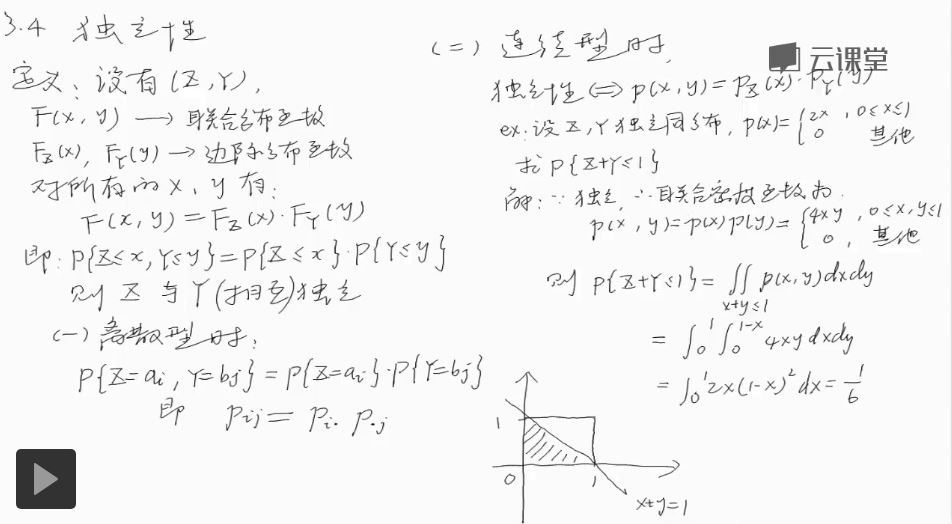 3.4 独立性
定义：设有(X,Y),
F(x,y) → 联合分布函数
F_X(x), F_Y(y) → 边际分布函数
对所有的x,y有：
F(x,y)=F_X(x)·F_Y(y)
即：P{X≤x,Y≤y}=P{X≤x}·P{Y≤y}
则 X 与 Y(相互)独立
(一) 离散型时：
P{X=ai, Y=bj}=P{X=ai}·P{Y=bj}
即 Pij = Pi· P·j
(二) 连续型时
云课堂
独立性 ⇔ p(x,y)=P_X(x)·P_Y(y)
ex:设X,Y独立同分布, p(x)={2x, 0≤x≤1
0 其他
求P{X+Y≤1}
解：∵独立, ∴联合密度函数为
p(x,y)=p(x)p(y)={4xy, 0≤x,y≤1
0, 其他
则 P{X+Y≤1}=∬p(x,y)dxdy
x+y≤1
=∫₀¹∫₀^{1-x} 4xydxdy
=∫₀¹2x(1-x)²dx=1/6
1
0 1
x+y=1